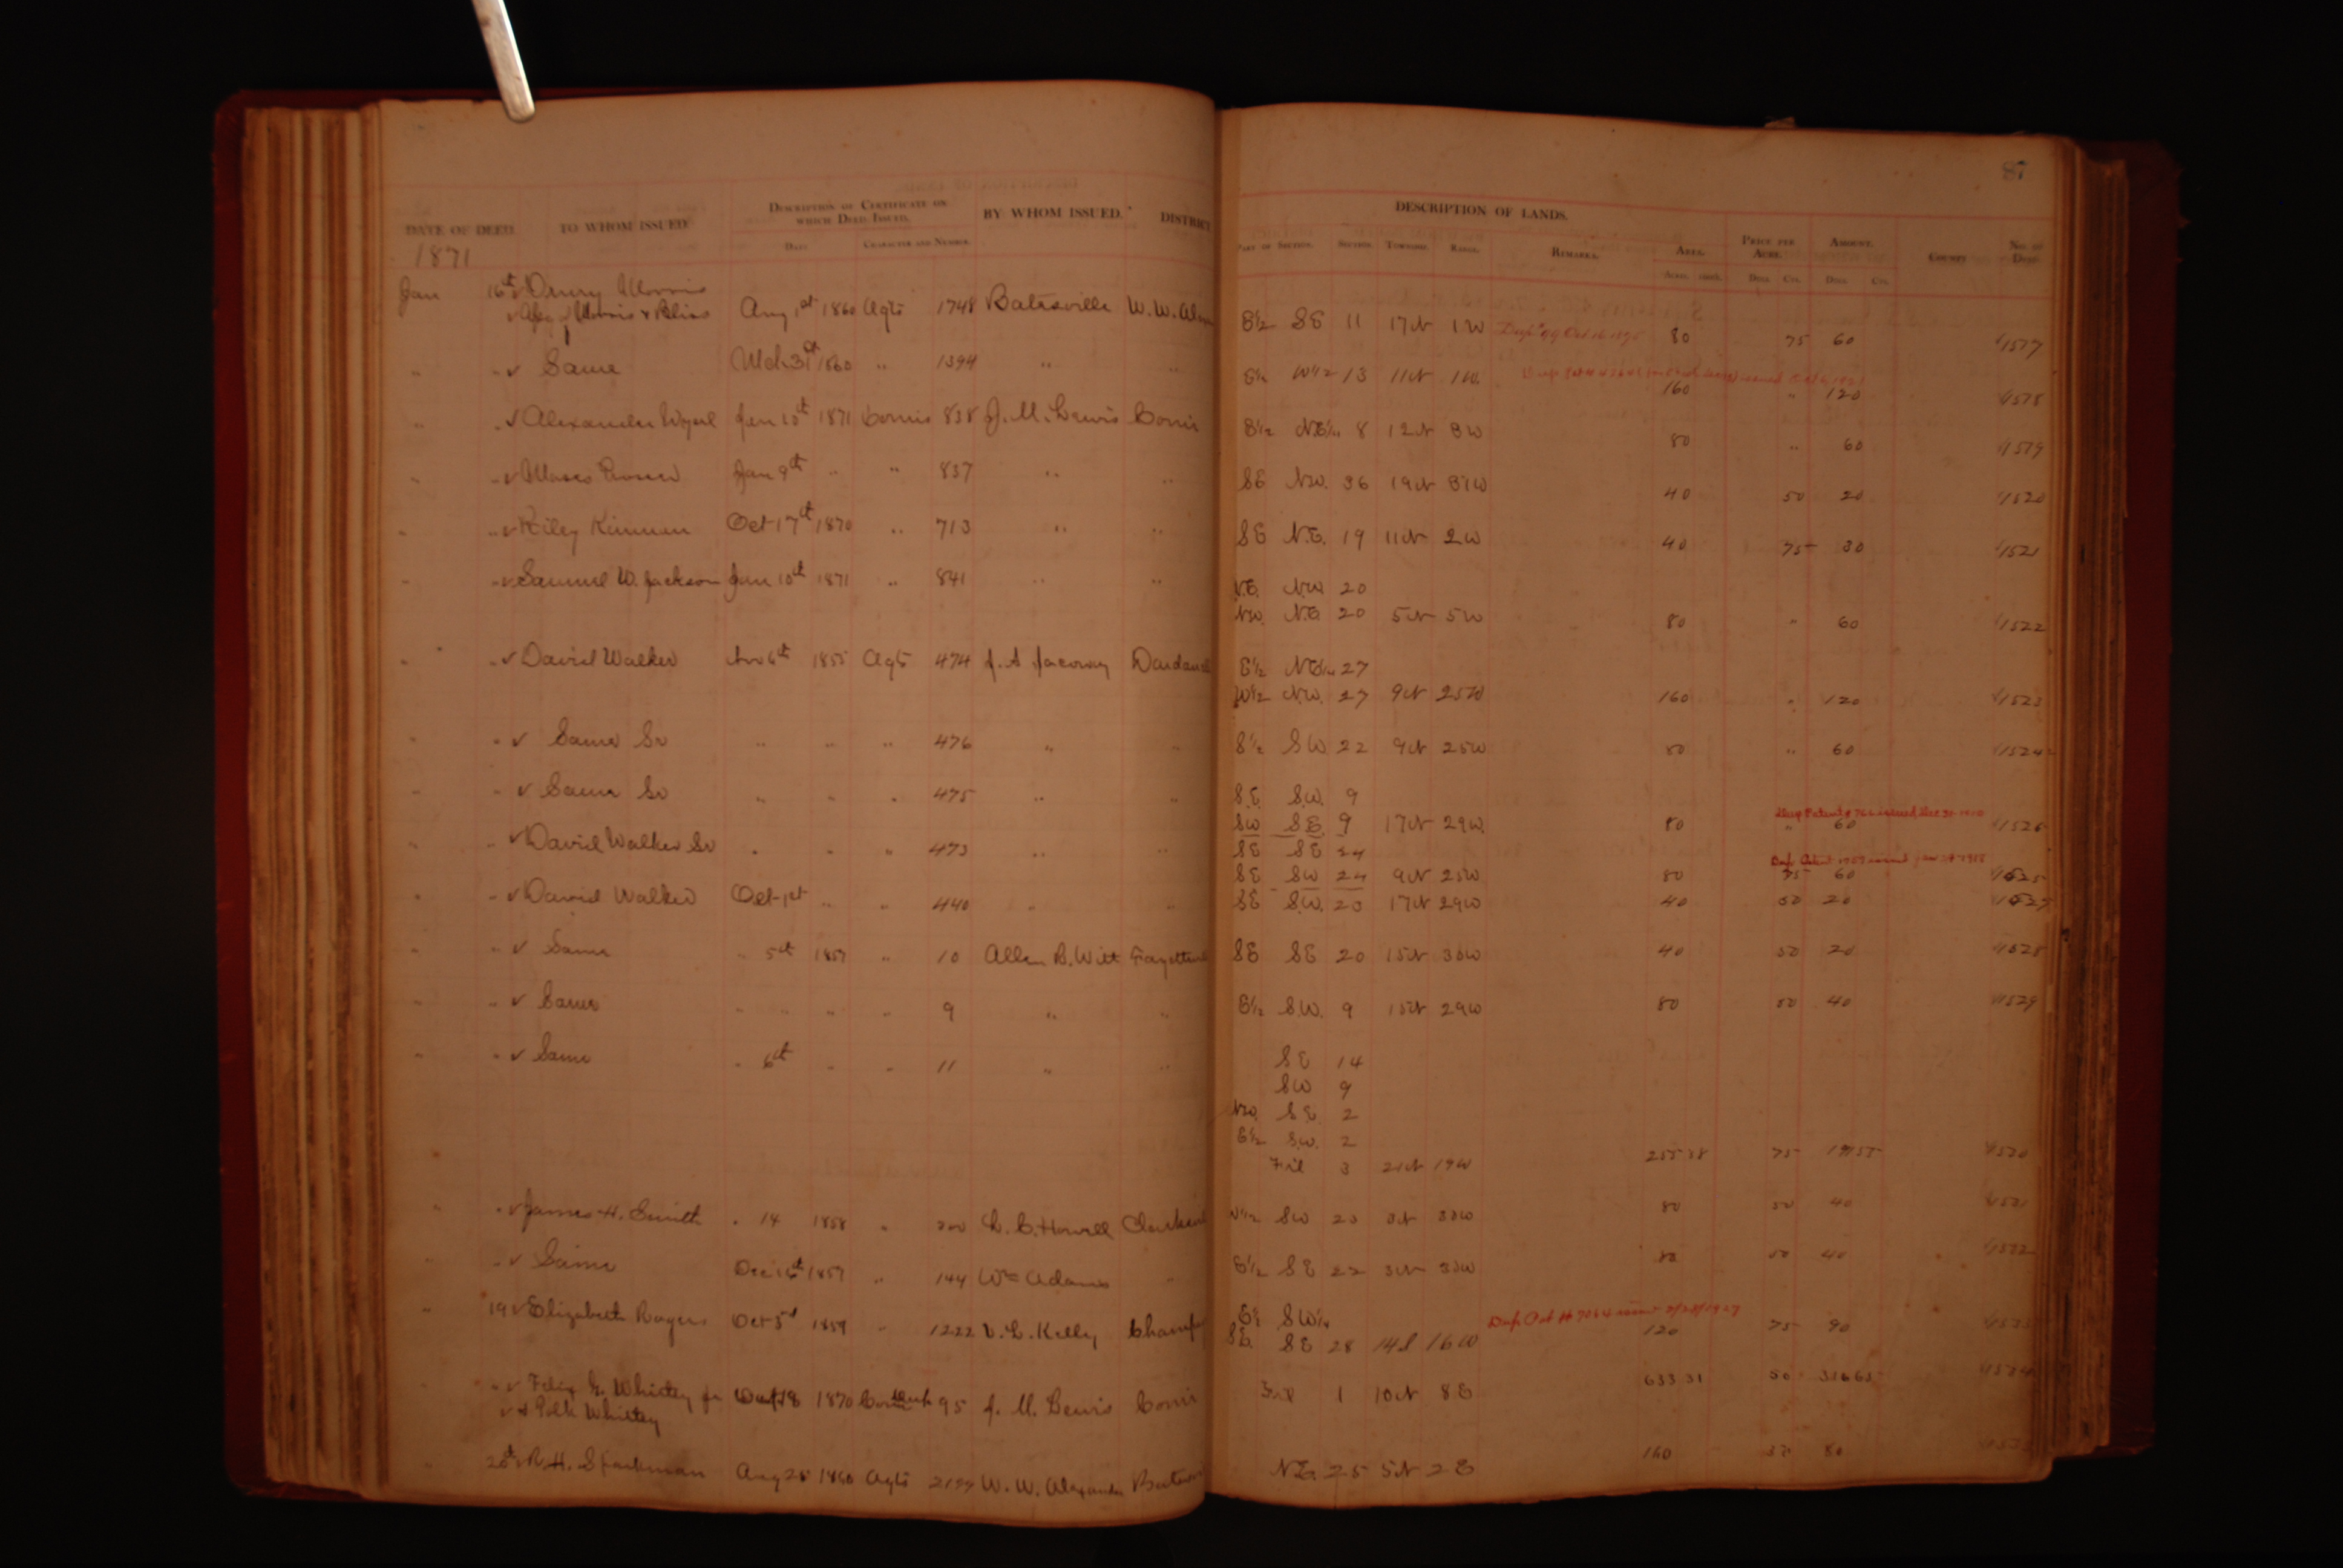 87
DATE OF DEED. TO WHOM ISSUED DESCRIPTION OF CERTIFICATE ON WHICH DEED ISSUED. BY WHOM ISSUED. DISTRICT DESCRIPTION OF LANDS.
DATE CHARACTER AND NUMBER. PART OF SECTION. SECTION. TOWNSHIP. RANGE. REMARKS. AREA. PRICE PER ACRE. AMOUNT. COUNTY NO. OF DEED
ACRES DOLLS. CTS. DOLLS. CTS.
1871
Jan 16th ✓ Drury Morris
✓ Morris & Bliss Aug 1st 1860 Agts 1748 Batesville W. W. E½ SE 11 17N 1W 80 75 60 ✓1517
" " ✓ Same Mch 31st 1860 " 1394 " " W½ 13 11N 1W. 160 " 120 ✓1518
" " ✓ Alexander Jan 10th 1871 Comis 838 J. M. Lewis Comis E½ NE¼ 8 12N 8W 80 " 60 ✓1519
" " ✓ Moses Jan 9th " " 837 " " SE NW. 36 19N 31W 40 50 20 ✓1520
" " ✓ Riley Kinman Oct 17th 1870 " 713 " " SE N.E. 19 11N 2W 40 75 30 ✓1521
" " ✓ Samuel W. Jackson Jan 10th 1871 " 841 " " N.E. N.W. 20
NW. N.E 20 5N 5W 80 " 60 ✓1522
" " ✓ David Walker 6th 1855 Agts 474 J. A Jacoway Dardanell E½ NE¼ 27
W½ N.W. 27 9N 25W 160 " 120 ✓1523
" " ✓ Same Sr " " " 476 " " S½ SW 22 9N 25W 80 " 60 ✓1524
" " ✓ Same Sr " " " 475 " " S.E. S.W. 9
SW SE. 9 17N 29W. 80 " 60 ✓1526
" " ✓ David Walker Sr " " " 473 " " SE SE 24
SE SW 24 9N 25W 80 75 60 ✓1525
" " ✓ David Walker Oct 1st " " 440 " " SE S.W. 20 17N 29W 40 50 20 ✓1527
" " ✓ Same " 5th 1857 " 10 Allen B. Witt Fayettevil SE SE 20 15N 30W 40 50 20 ✓1528
" " ✓ Same " " " " 9 " " E½ S.W. 9 15N 29W 80 50 40 ✓1529
" " ✓ Same " 6th " " 11 " " SE 14
SW 9
NW. SE 2
E½ S.W. 2
Frl 3 21N 19W 255 38 75 191 55 ✓1530
" " ✓ James H. Smith " 14 1858 " 200 L. C. Howell W½ SW 20 3N 30W 80 50 40 ✓1531
" " ✓ Same Dec 16th 1857 " 144 Wm Adams " E½ SE 22 3N 30W 80 50 40 ✓1532
" 19 ✓ Elizabeth Rogers Oct 5 1859 " 1222 Kelly E½ SW¼
SE. SE 28 14S 16W 120 75 90 ✓1533
" " ✓ Felix G. Whitley Jr 1870 95 J. M. Lewis Comis Frl 1 10N 8E 633 31 50 316 65 ✓1534
✓ & Polk Whitley
" 20th ✓ R. H. Sparkman Aug 25 1860 Agts W. W. Alexander N.E. 25 5N 2E 160 50 80